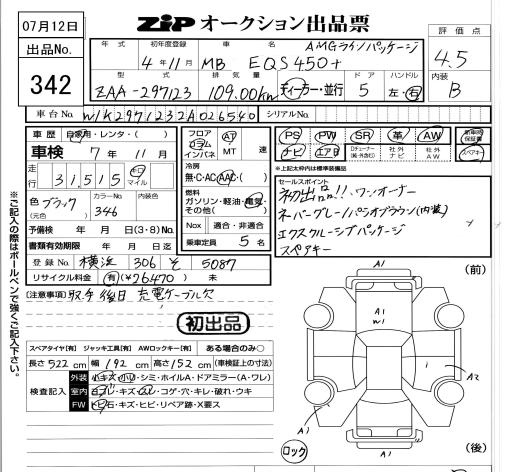 07月12日
出品No.
342
ZIP オークション出品票
評価点
4.5
内装
B
年式 初年度登録 車名 AMGラインパッケージ
4年11月 MB EQS 450+
型式 排気量 ドア ハンドル
ZAA-297123 109.00kw ディーラー・並行 5 左・右
車台No. W1K2971232A026540 シリアルNo.
車歴 自家用・レンタ・( )
車検 7年 11月
走行 31,515 キロ マイル
色 ブラック (元色) カラーNo. 346 内装色
予備検 年 月 日(3・8)No.
書類有効期限 年 月 日迄
登録No. 横浜 306 そ 5087
リサイクル料金 有(¥26470) 未
フロア コラム インパネ AT MT 速
冷房 無・C・AC・AAC・( )
燃料 ガソリン・軽油・電気・その他( )
Nox 適合・非適合
乗車定員 5 名
PS PW SR 革 AW 新車時保証書
ナビ エアB Dチューナー(純・外含む) 社外ナビ 社外AW スペアキー
※上記太枠内は標準装備品
セールスポイント
初出品!!、ワンオーナー
ネバーグレー/バシオブラウン(内装)
エクスクルーシブパッケージ
スペアキー
[注意事項] 取寄 後日 充電ケーブル欠
初出品
スペアタイヤ[有] ジャッキ工具[有] AWロックキー[有] ある場合のみ○
長さ 522 cm 幅 192 cm 高さ 152 cm (車検証上の寸法)
検査記入
外装 小キズ・小凹・シミ・ホイルA・ドアミラー(A・ワレ)
室内 ヨゴレ・キズ・スレ・コゲ・穴・キレ・破れ・ウキ
FW トビ石・キズ・ヒビ・リペア跡・X要ス
※ご記入の際はボールペンで強くご記入下さい。
(前)
A1
A1
W1
A2
A1
A1
ロック
(後)